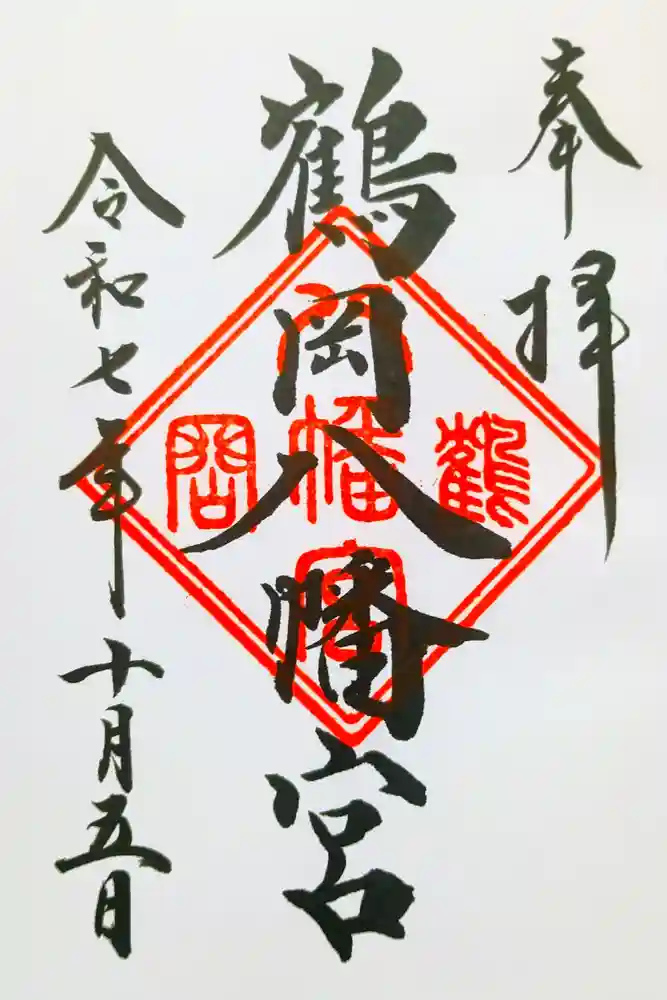 奉拝
鶴岡八幡宮
鶴
八幡宮
岡
令和七年十月五日